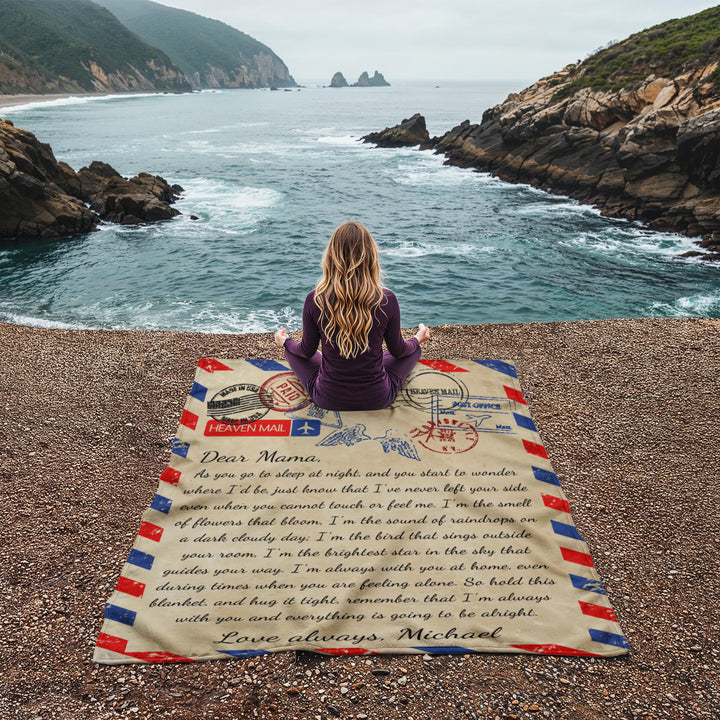 MADE IN USA
PAID
HEAVEN MAIL
POST OFFICE
HEAVEN MAIL
Dear Mama,
As you go to sleep at night, and you start to wonder
where I'd be, just know that I've never left your side
even when you cannot touch or feel me. I'm the smell
of flowers that bloom, I'm the sound of raindrops on
a dark cloudy day; I'm the bird that sings outside
your room, I'm the brightest star in the sky that
guides your way. I'm always with you at home, even
during times when you are feeling alone. So hold this
blanket, and hug it tight, remember that I'm always
with you and everything is going to be alright.
Love always, Michael